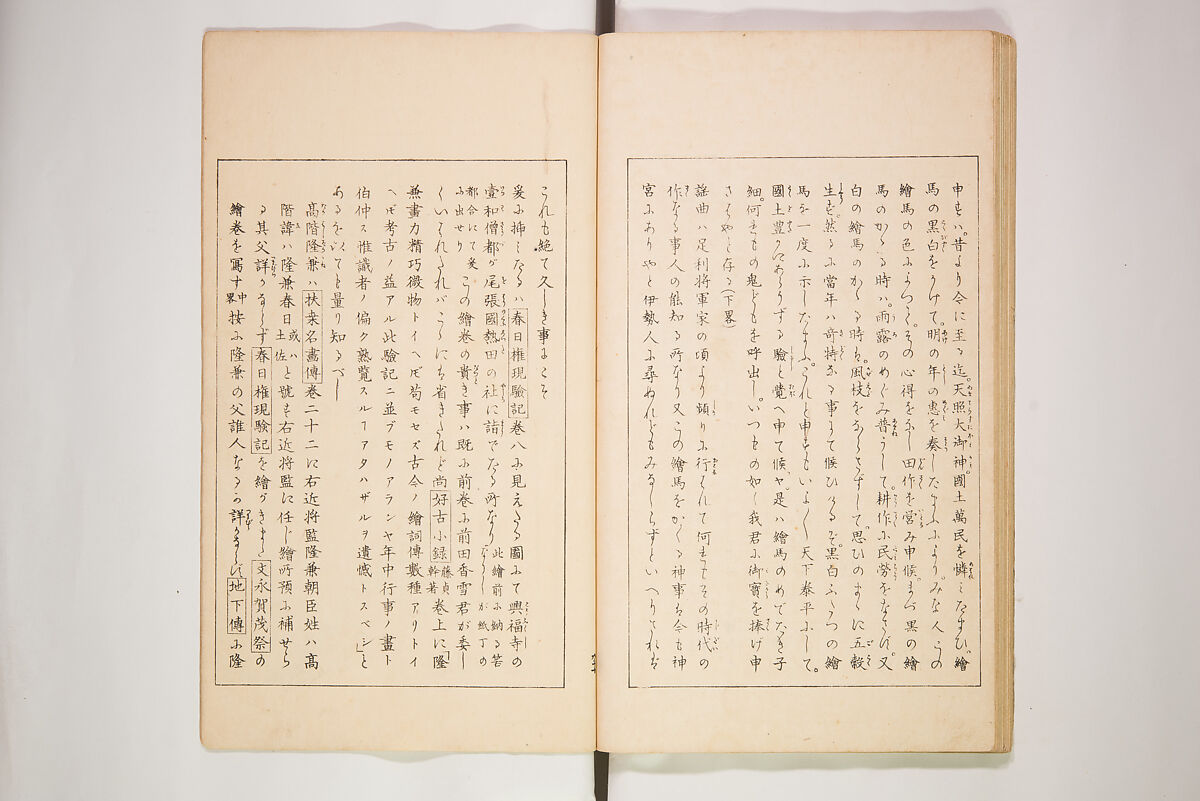 申すハ。昔より今に至る迄。天照大御神。國土萬民を憐ミたまひ。繪
馬の黒白をかけて。明の年の惠を奏したまふにより。みな人この
繪馬の色によつて。その心得をなし田作を営み申候。まづ黒の繪
馬のかゝる時ハ。雨露のめぐみ普うして。耕作に民勞をなさず。又
白の繪馬のかゝる時も。風枝をならさずして。思ひのまゝに五穀
生ず。然るに當年ハ奇特なる事にて候ひけるぞ。黒白ふたつの繪
馬を一度に示したまふ。これと申すもいよ〳〵天下泰平にして。
國土豊かにあらうずる驗と覺へ申て候。や。是ハ繪馬のめでたき子
細。何れもの鬼どもを呼出し。いつもの如く我君に御寳を捧げ申
さばやと存る(下畧)
謡曲ハ足利将軍家の頃より頻りに行はれて何れもその時代の
作なる事人の能知る所なり又この繪馬をかくる神事も今も神
宮にありやと伊勢人に尋ぬれどもみなしらずといへりされば
これも絶て久しき事にこそ
爰に挿したるハ春日権現驗記巻八に見えたる圖にて興福寺の
壹和僧都が尾張國熱田の社に詣でたる所なり 此繪前に納る筈なりしが紙丁の
都合にて爰に出せり この繪巻の貴き事ハ既に前巻に前田香雪君が委し
くいはれたればこゝにハ省きたれど尚好古小録 藤貞幹著 巻上に「隆
兼畫力精巧微物トイヘドモ苟モセズ古今ノ繪詞傳數種アリトイ
ヘドモ考古ノ益アル此驗記ニ並ブモノアランヤ年中行事ノ畫ト
伯仲ス惟識者ノ偏ク熟覽スルヿアタハザルヲ遺憾トスベシ」と
あるをいても量り知るべし
高階隆兼ハ扶桒名畫傳巻二十二に右近将監隆兼朝臣姓ハ高
階諱ハ隆兼春日 或ハ土佐 と號す右近将監に任じ繪所預に補せら
る其父詳かならず春日権現験記を繪がきまた文永賀茂祭の
繪巻を寫す 中畧 按に隆兼の父誰人なるか詳かならず地下傳に隆